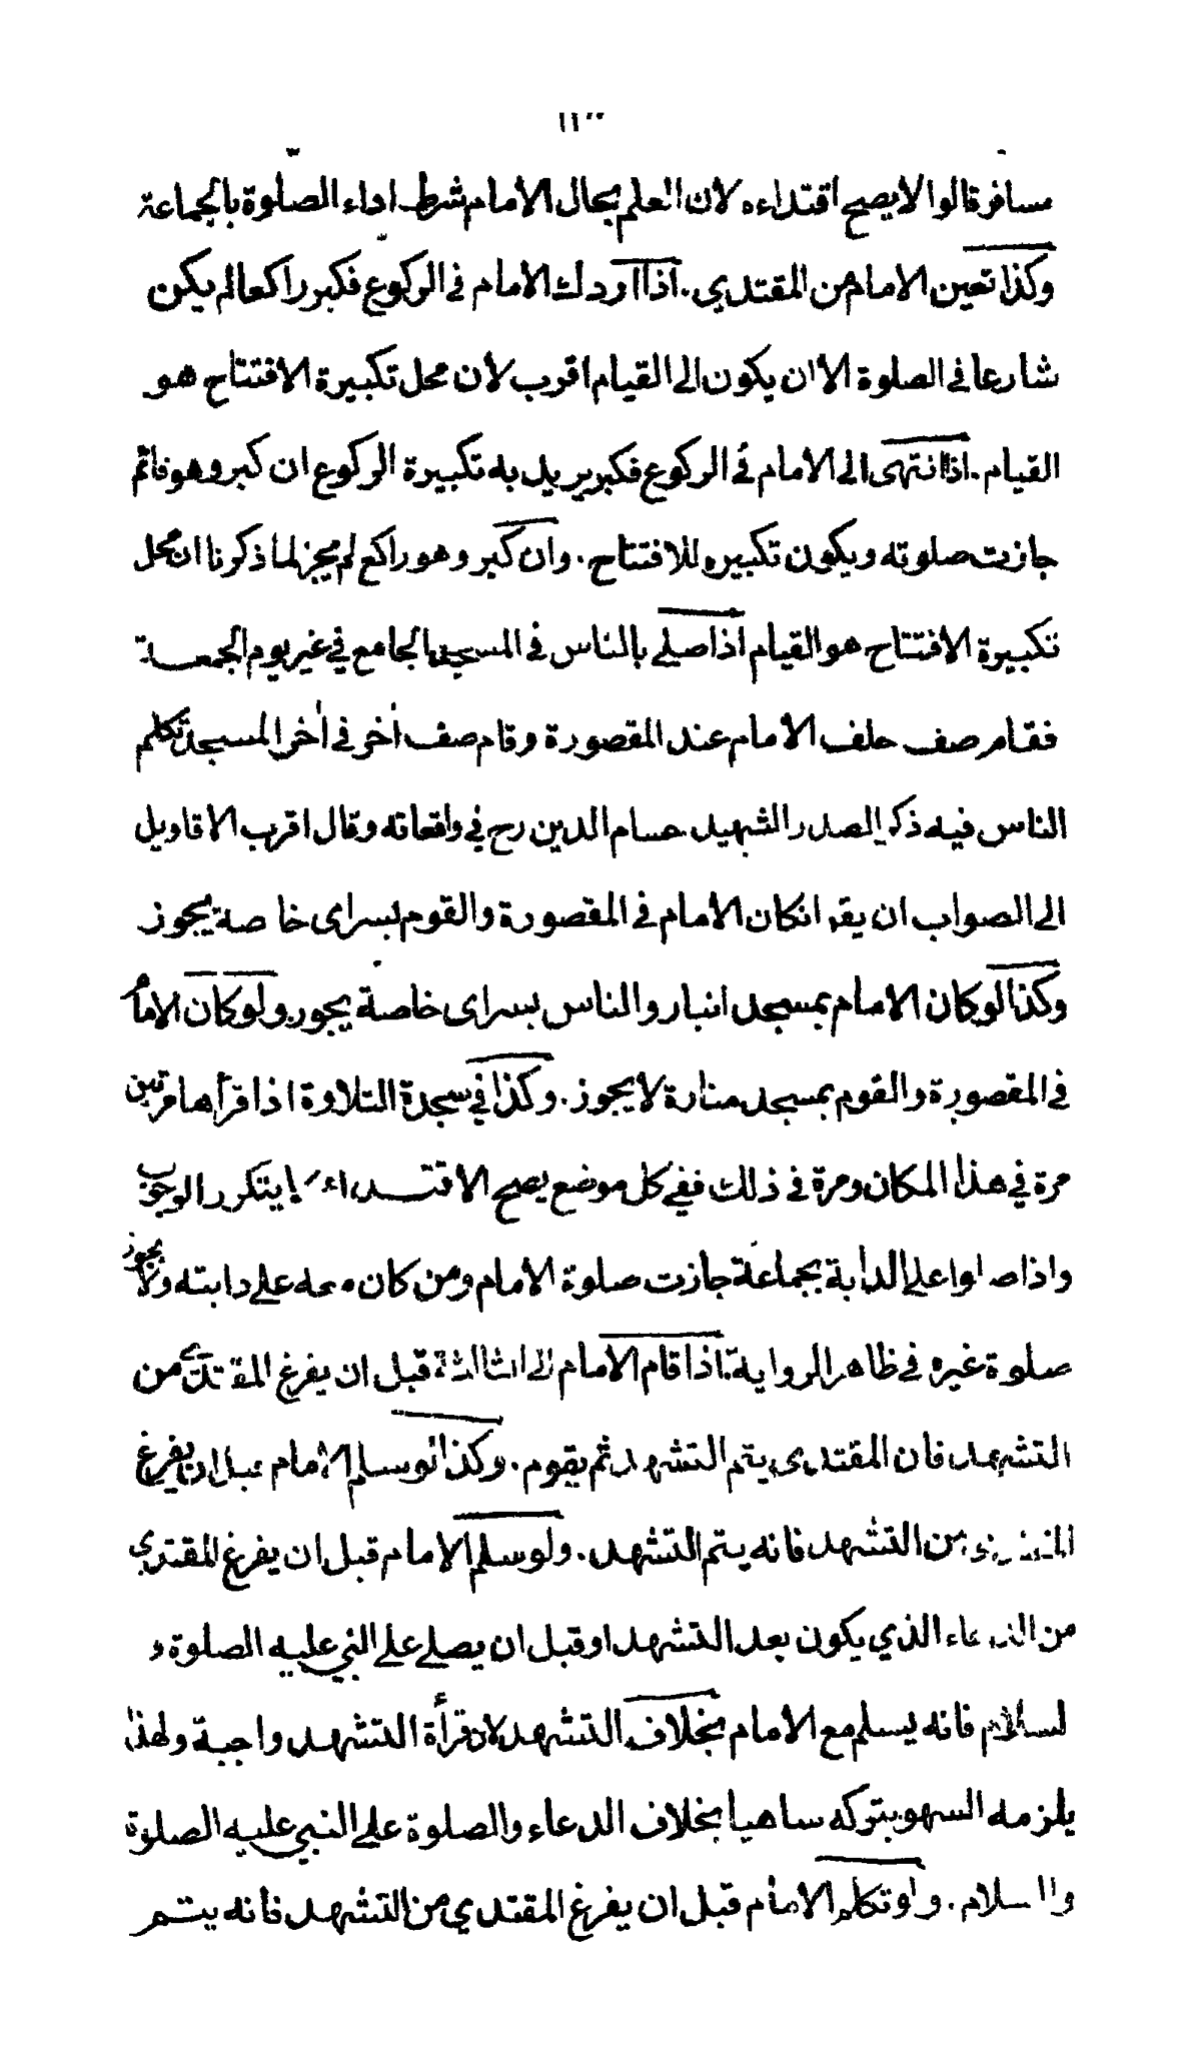 مسافر قالوا لا يصح اقتداءه لان العلم بحال الامام شرط اداء الصلوة بالجماعة
وكذا تعين الامام من المقتدي . اذا اردك الامام في الركوع فكبر راكعا لم يكن
شارعا في الصلوة الا ان يكون الى القيام اقرب لان محل تكبيرة الافتتاح هو
القيام . اذا انتهى الى الامام في الركوع فكبر يريد به تكبيرة الركوع ان كبر وهو قائم
جازت صلوته ويكون تكبيره للافتتاح . وان كبر وهو راكع لم يجز لما ذكرنا ان محل
تكبيرة الافتتاح هو القيام اذا صلى بالناس في المسجد الجامع في غير يوم الجمعة
فقام صف خلف الامام عند المقصورة وقام صف اخر في اخر المسجد تكلم
الناس فيه ذكر الصدر الشهيد حسام الدين رح في واقعاته وقال اقرب الاقاويل
الى الصواب ان يقر انكان الامام في المقصورة والقوم بسراى خاصة يجوز
وكذا لو كان الامام بمسجد انبار والناس بسراى خاصة يجوز ولو كان الامام
في المقصورة والقوم بمسجد منارة لا يجوز . وكذا في سجدة التلاوة اذا قرأها مرتين
مرة في هذا المكان ومرة في ذلك ففي كل موضع يصح الاقتداء لا يتكرر الوجوب
واذا صلوا على الدابة بجماعة جازت صلوة الامام ومن كان معه على دابته ولا يجوز
صلوة غيره في ظاهر الرواية . اذا قام الامام الى الثالثة قبل ان يفرغ المقتدي من
التشهد فان المقتدى يتم التشهد ثم يقوم . وكذا لو سلم الامام قبل ان يفرغ
المقتدي من التشهد فانه يتم التشهد . ولو سلم الامام قبل ان يفرغ المقتدي
من الدعاء الذي يكون بعد التشهد او قبل ان يصلي على النبي عليه الصلوة و
لسلام فانه يسلم مع الامام بخلاف التشهد لان قرأة التشهد واجبة ولهذا
يلزمه السهو بتركه ساهيا بخلاف الدعاء والصلوة على النبي عليه الصلوة
والسلام . ولو تكلم الامام قبل ان يفرغ المقتدي من التشهد فانه يتم